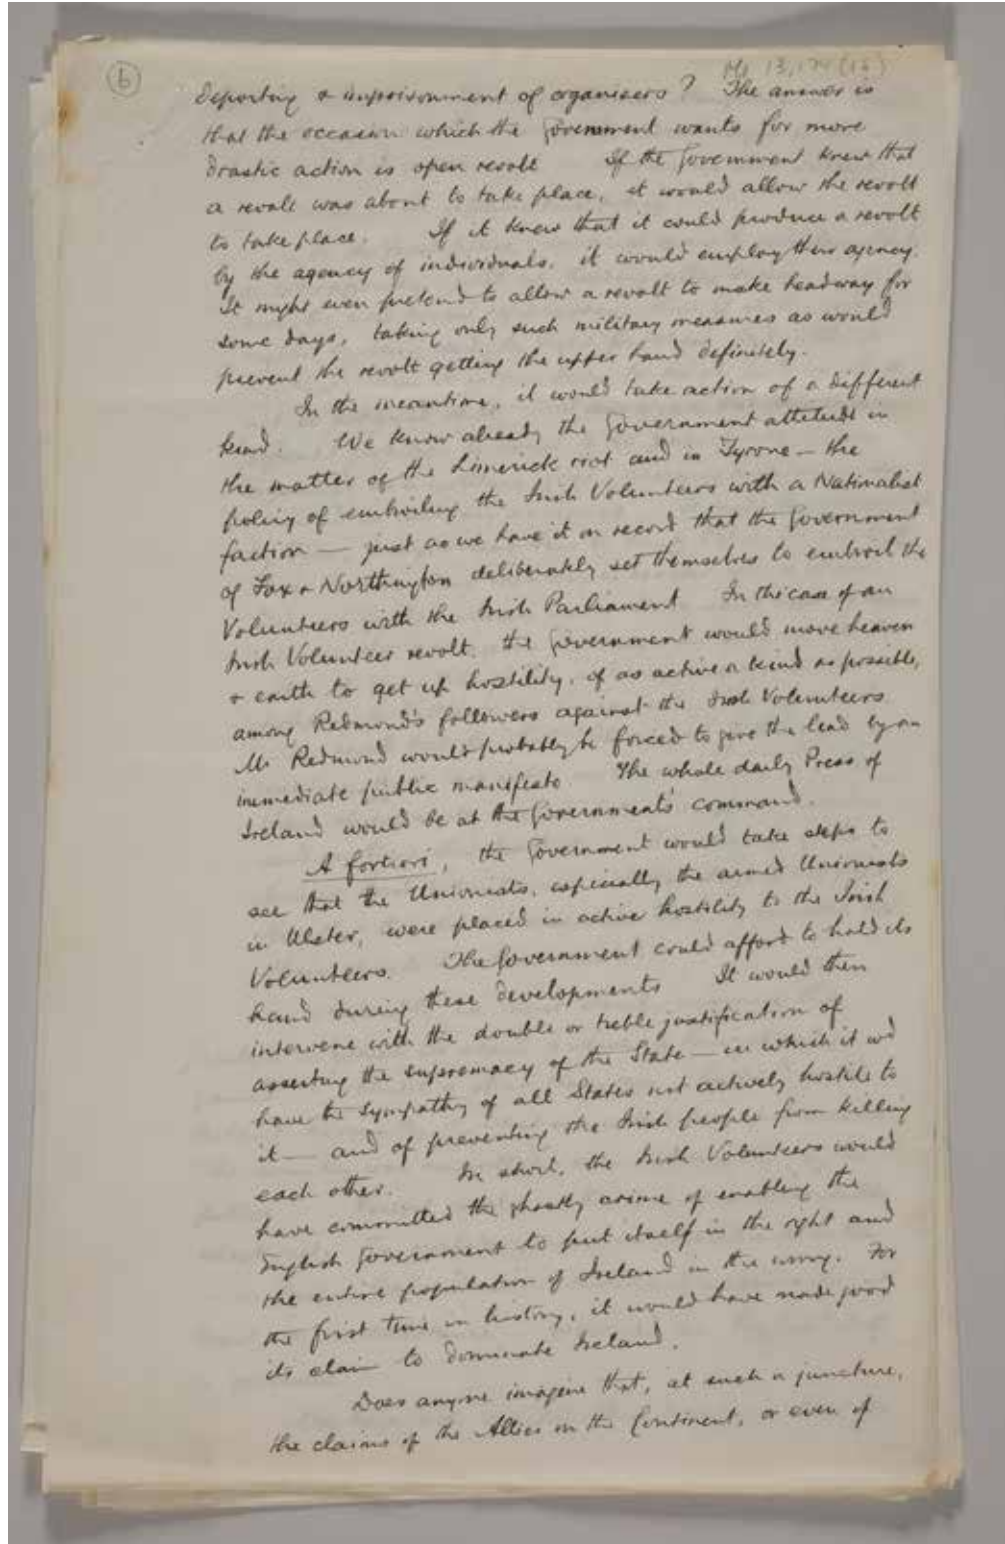 6
Ms 13,174 (15)
deporting & imprisonment of organisers? The answer is
that the occasion which the Government wants for more
drastic action is open revolt If the Government knew that
a revolt was about to take place, it would allow the revolt
to take place. If it knew that it could produce a revolt
by the agency of individuals, it would employ their agency.
It might even pretend to allow a revolt to make headway for
some days, taking only such military measures as would
prevent the revolt getting the upper hand definitely.
In the meantime, it would take action of a different
kind. We know already the Government attitude in
the matter of the Limerick riot and in Tyrone — the
policy of embroiling the Irish Volunteers with a Nationalist
faction — just as we have it on record that the Government
of Fox & Northington deliberately set themselves to embroil the
Volunteers with the Irish Parliament In the case of an
Irish Volunteer revolt, the Government would move heaven
& earth to get up hostility, of as active a kind as possible,
among Redmond's followers against the Irish Volunteers.
Mr Redmond would probably be forced to give the lead by an
immediate public manifesto The whole daily Press of
Ireland would be at the Government's command.
A fortiori, the Government would take steps to
see that the Unionists, especially the armed Unionists
in Ulster, were placed in active hostility to the Irish
Volunteers. The Government could afford to hold its
hand during these developments It would then
intervene with the double or treble justification of
asserting the supremacy of the State — in which it wd
have the sympathy of all States not actively hostile to
it — and of preventing the Irish people from killing
each other. In short, the Irish Volunteers would
have committed the ghastly crime of enabling the
English Government to put itself in the right and
the entire population of Ireland in the wrong. For
the first time in history, it would have made good
its claim to dominate Ireland.
Does anyone imagine that, at such a juncture,
the claims of the Allies on the Continent, or even of